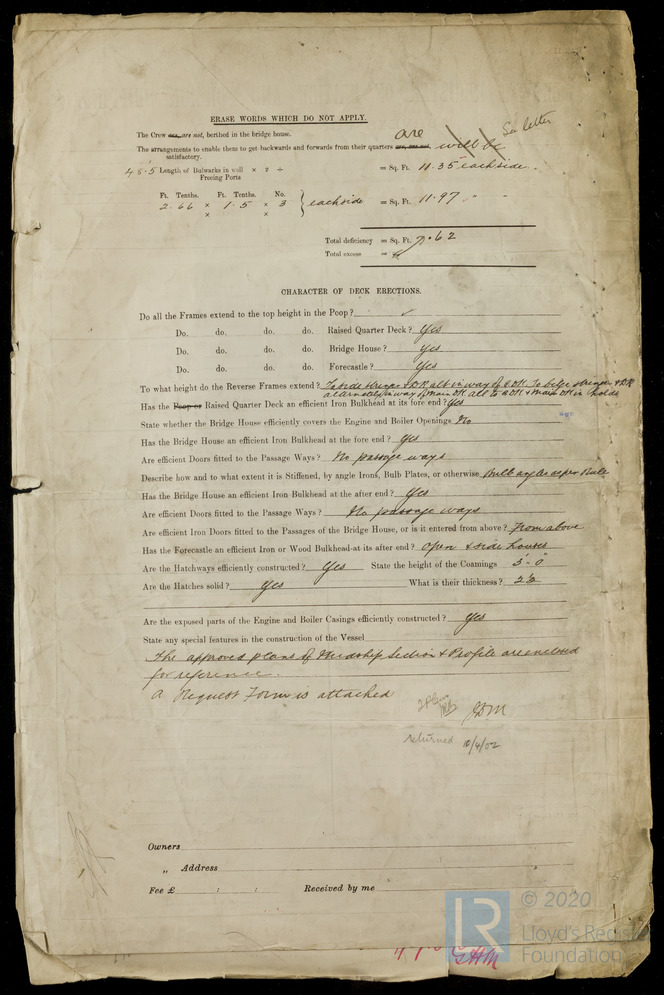 ERASE WORDS WHICH DO NOT APPLY.
The Crew are, are not, berthed in the bridge house.
are See letter
The arrangements to enable them to get backwards and forwards from their quarters are, are not, will be
satisfactory.
45.5 Length of Bulwarks in well × 2 ÷ = Sq. Ft. 11.35 each side.
Freeing Ports
Ft. Tenths. Ft. Tenths. No.
2.66 × 1.5 × 3 } each side = Sq. Ft. 11.97 " "
× ×
Total deficiency = Sq. Ft. .62
Total excess =
CHARACTER OF DECK ERECTIONS.
Do all the Frames extend to the top height in the Poop? ✓
Do. do. do. do. Raised Quarter Deck? Yes
Do. do. do. do. Bridge House? Yes
Do. do. do. do. Forecastle? Yes
To what height do the Reverse Frames extend? To side stringer & DK alt in way of R.DK. To bilge stringer & DK
alternately in way of Main DK. alt to R DK & Main DK in holds
Has the Poop or Raised Quarter Deck an efficient Iron Bulkhead at its fore end? Yes
State whether the Bridge House efficiently covers the Engine and Boiler Openings No
Has the Bridge House an efficient Iron Bulkhead at the fore end? Yes
Are efficient Doors fitted to the Passage Ways? No passage ways
Describe how and to what extent it is Stiffened, by angle Irons, Bulb Plates, or otherwise Bulb angles as per Rule
Has the Bridge House an efficient Iron Bulkhead at the after end? Yes
Are efficient Doors fitted to the Passage Ways? No passage ways
Are efficient Iron Doors fitted to the Passages of the Bridge House, or is it entered from above? From above
Has the Forecastle an efficient Iron or Wood Bulkhead at its after end? Open & side houses
Are the Hatchways efficiently constructed? Yes State the height of the Coamings 3'-0"
Are the Hatches solid? Yes What is their thickness? 2½
Are the exposed parts of the Engine and Boiler Casings efficiently constructed? Yes
State any special features in the construction of the Vessel
The approved plans of Midship Section & Profile are enclosed
for reference.
A Request Form is attached
2 Plans
JDM
returned 10/4/02
Owners
„ Address
Fee £ : : Received by me
LR © 2020
Lloyd's Register
Foundation